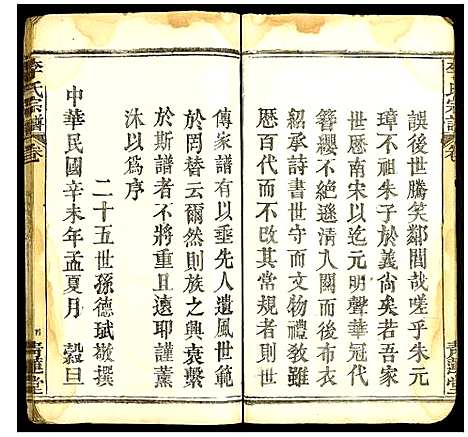 誤後世騰笑鄰閭哉嗟乎朱元
璋不祖朱子於義尚矣若吾家
世歷南宋以迄元明聲華冠代
簪纓不絕遜清入關而後雖有
紹承詩書世守而文物禮教雖
歷百代而不改其常規者此
傳家譜有以垂先人遺風世範
於罔替云爾然則族之興衰繫
於斯譜者不將重且遠耶謹薰
沐以為序
二十五世孫德斌敬撰
中華民國辛未年孟夏月 穀旦
李氏宗譜
卷
青蓮堂
李氏宗譜
卷
青蓮堂